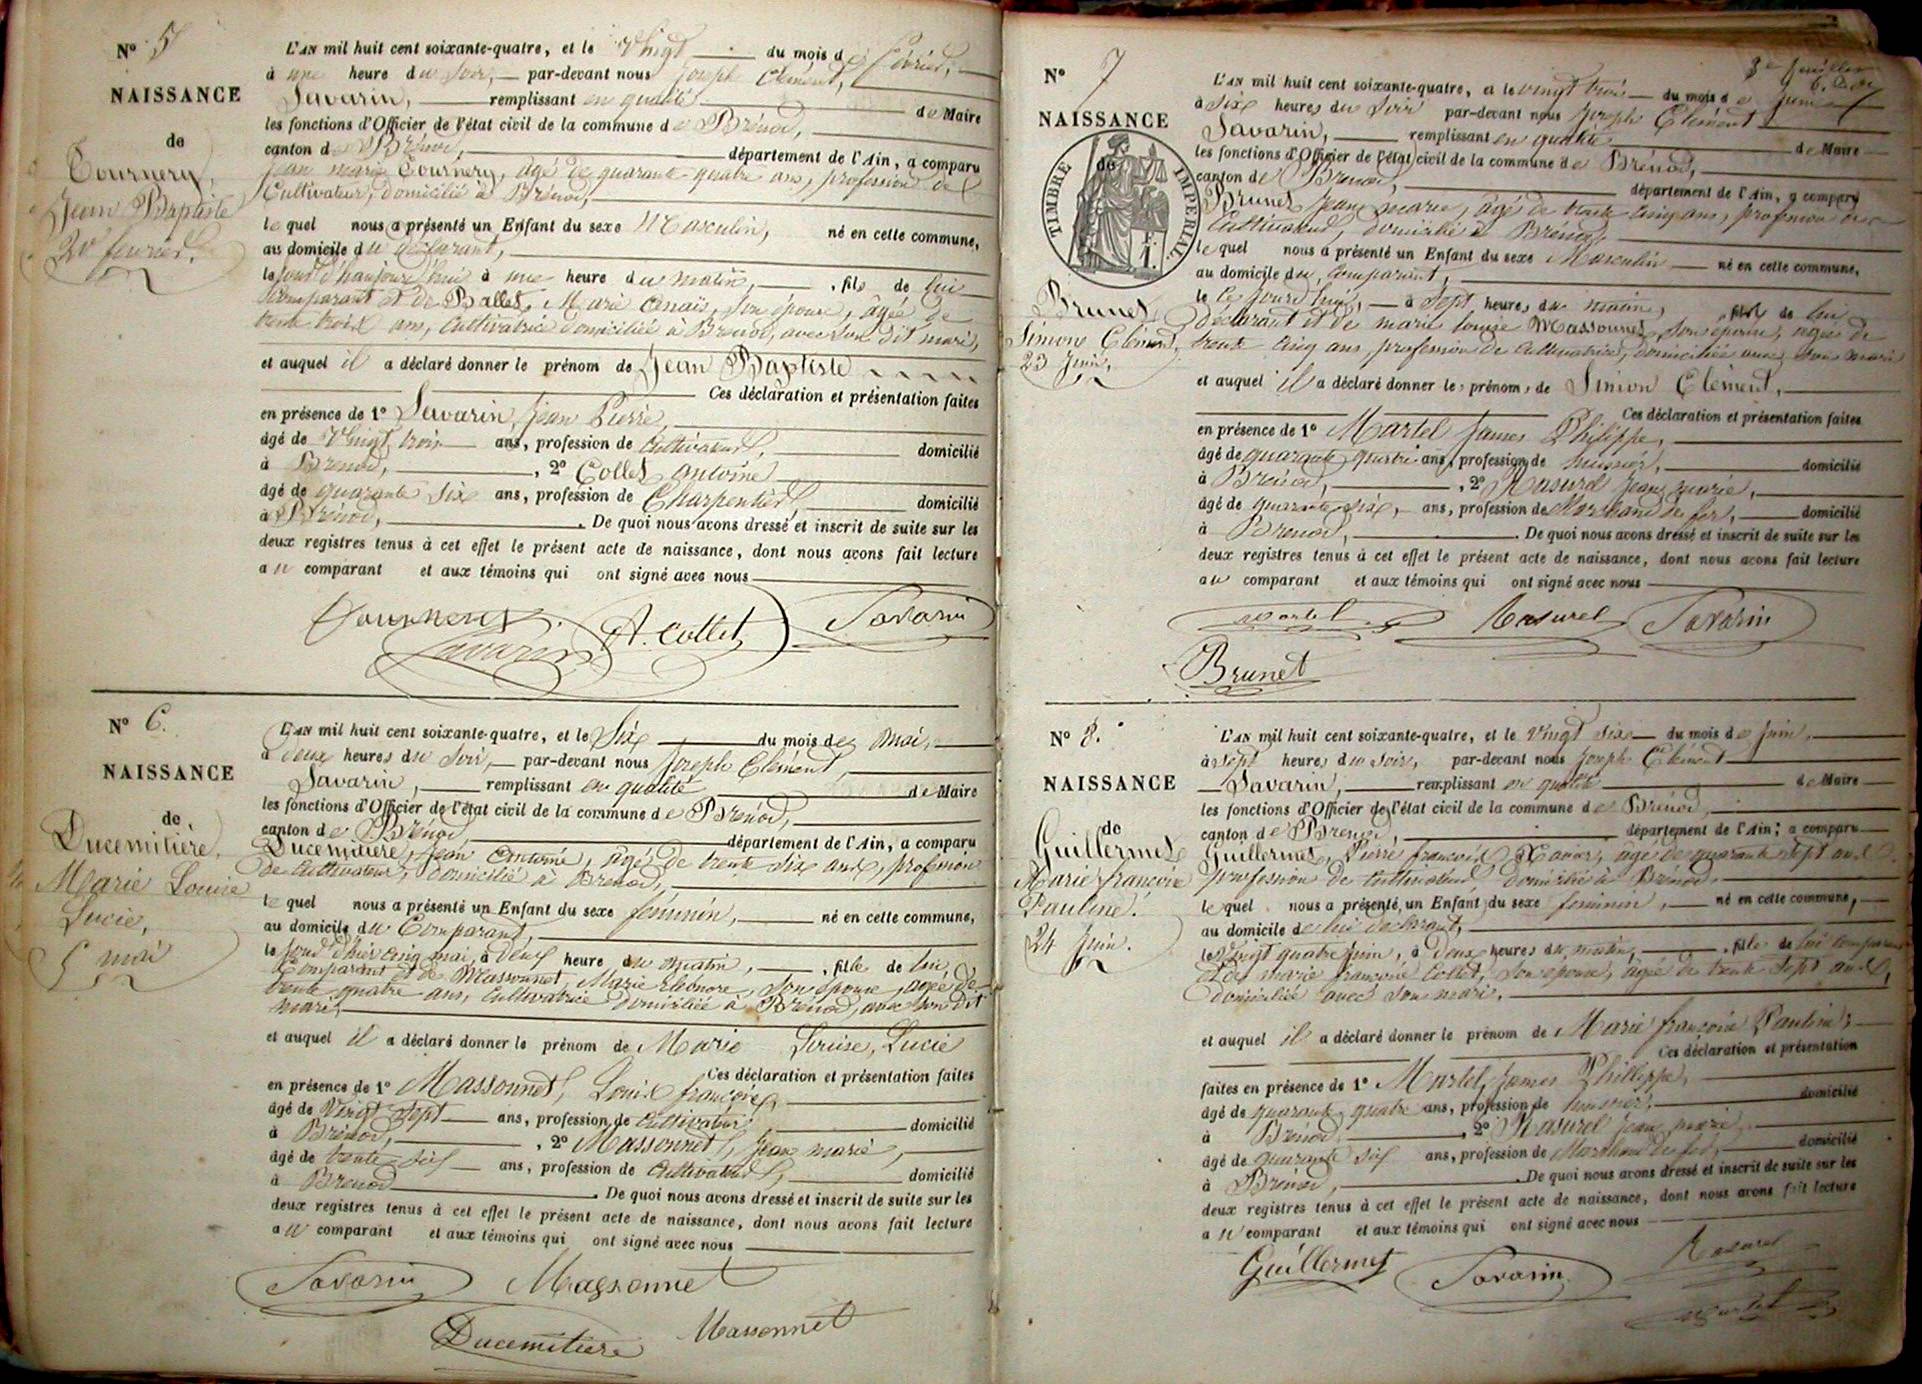 N° 5
NAISSANCE
de
Tournery,
Jean Baptiste
20 février.
L'AN mil huit cent soixante-quatre, et le Vingt du mois de février,
à une heure du soir, par-devant nous Joseph Clément,
Savarin, remplissant en qualité de Maire
les fonctions d'Officier de l'état civil de la commune de Brénod,
canton de Brénod, département de l'Ain, a comparu
Jean marie Tournery, âgé de quarante quatre ans, profession de
Cultivateur, domicilié à Brénod,
lequel nous a présenté un Enfant du sexe Masculin, né en cette commune,
au domicile du déclarant,
le jour d'haujourd'hui à une heure du matin, fils de lui
comparant et de Ballet, Marie son épouse, âgée de
trente trois ans, Cultivatrice domiciliée à Brénod, avec son dit mari,
et auquel il a déclaré donner le prénom de Jean Baptiste
Ces déclaration et présentation faites
en présence de 1° Savarin, Jean Pierre,
âgé de Vhingt trois ans, profession de Cultivateur, domicilié
à Brénod, 2° Collet antoine
âgé de quarante six ans, profession de Charpentier domicilié
à Brénod, De quoi nous avons dressé et inscrit de suite sur les
deux registres tenus à cet effet le présent acte de naissance, dont nous avons fait lecture
au comparant et aux témoins qui ont signé avec nous
Tournery
A. Collet
Savarin
Savarin
N° 6.
NAISSANCE
de
Ducemitière,
Marie Louise
Lucie,
5 mai
L'AN mil huit cent soixante-quatre, et le Six du mois de mai,
à deux heures du soir, par-devant nous Joseph Clément,
Savarin, remplissant en qualité de Maire
les fonctions d'Officier de l'état civil de la commune de Brénod,
canton de Brénod département de l'Ain, a comparu
Ducemitière, Jean Antoine, âgé de trente six ans, profession
de Cultivateur, domicilié à Brénod,
lequel nous a présenté un Enfant du sexe féminin, né en cette commune,
au domicile du Comparant,
le jour d'hier cinq mai, à deux heure du matin, fille de lui,
Comparant et de Massonnet, Marie Eléonore, son épouse, agée de
trente quatre ans, Cultivatrice domiciliée à Brénod, avec son dit
mari,
et auquel il a déclaré donner le prénom de Marie Louise, Lucie
Ces déclaration et présentation faites
en présence de 1° Massonnet, Louis françois,
âgé de Vingt sept ans, profession de Cultivateur domicilié
à Brénod, 2° Massonnet, Jean marie,
âgé de trente six ans, profession de Cultivateur, domicilié
à Brenod De quoi nous avons dressé et inscrit de suite sur les
deux registres tenus à cet effet le présent acte de naissance, dont nous avons fait lecture
au comparant et aux témoins qui ont signé avec nous
Savarin
Massonnet
Ducemitiere
Massonnet
3e feuillet
N° 7
NAISSANCE
de
TIMBRE IMPERIAL
1 f.
Brunet
Simon Clément,
23 Juin,
L'AN mil huit cent soixante-quatre, et le vingt trois du mois de juin
à six heures du soir par-devant nous Joseph Clément
Savarin, remplissant en qualité de Maire
les fonctions d'Officier de l'état civil de la commune de Brénod,
canton de Brenod, département de l'Ain, a comparu
Brunet Jean marie, âgé de trente cinq ans, profession de
Cultivateur, domicilié à Brenod,
lequel nous a présenté un Enfant du sexe Masculin né en cette commune,
au domicile du comparant,
le ce jourd'hui, à sept heures du matin, fils de lui
déclarant et de marie louise Massonnet son épouse, agée de
trente cinq ans, profession de Cultivatrice, domiciliée avec son mari
et auquel il a déclaré donner les prénoms de Simon Clément,
Ces déclaration et présentation faites
en présence de 1° Martel James Philippe,
âgé de quarante quatre ans, profession de huissier, domicilié
à Brénod, 2° Masurel Jean marie,
âgé de quarante six, ans, profession de Marchand de fer, domicilié
à Brenod, De quoi nous avons dressé et inscrit de suite sur les
deux registres tenus à cet effet le présent acte de naissance, dont nous avons fait lecture
au comparant et aux témoins qui ont signé avec nous
Martel
Masurel
Savarin
Brunet
N° 8.
NAISSANCE
de
Guillermet
Marie françoise
Pauline.
24 Juin.
L'AN mil huit cent soixante-quatre, et le vingt six du mois de juin,
à sept heures du soir, par-devant nous Joseph Clément
Savarin, remplissant en qualité de Maire
les fonctions d'Officier de l'état civil de la commune de Brénod
canton de Brenod, département de l'Ain; a comparu
Guillermet, Pierre françois Xavier, âgé de quarante sept ans
profession de Cultivateur domicilié à Brénod.
lequel nous a présenté, un Enfant du sexe feminin, né en cette commune,
au domicile de lui declarant,
le Vingt quatre juin, à Deux heures du matin, fille de lui comparant
et de marie françoise Collet, son epouse, agée de trente sept ans,
domiciliée avec son mari.
et auquel il a déclaré donner le prénom de Marie françoise Pauline;
Ces déclaration et présentation
faites en présence de 1° Martel James Philippe,
âgé de quarante quatre ans, profession de huissier, domicilié
à Brénod 2° Masurel Jean marie
âgé de quarante six ans, profession de Marchand de fer, domicilié
à Brénod, De quoi nous avons dressé et inscrit de suite sur les
deux registres tenus à cet effet le présent acte de naissance, dont nous avons fait lecture
au comparant et aux témoins qui ont signé avec nous
Guillermet
Savarin
Masurel
Martel